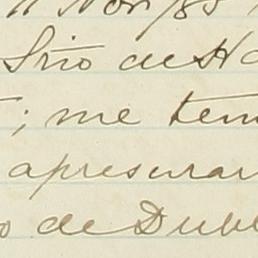 11 Nov/85
Srio de Ha
; me tem
apresurar
o de Dubl